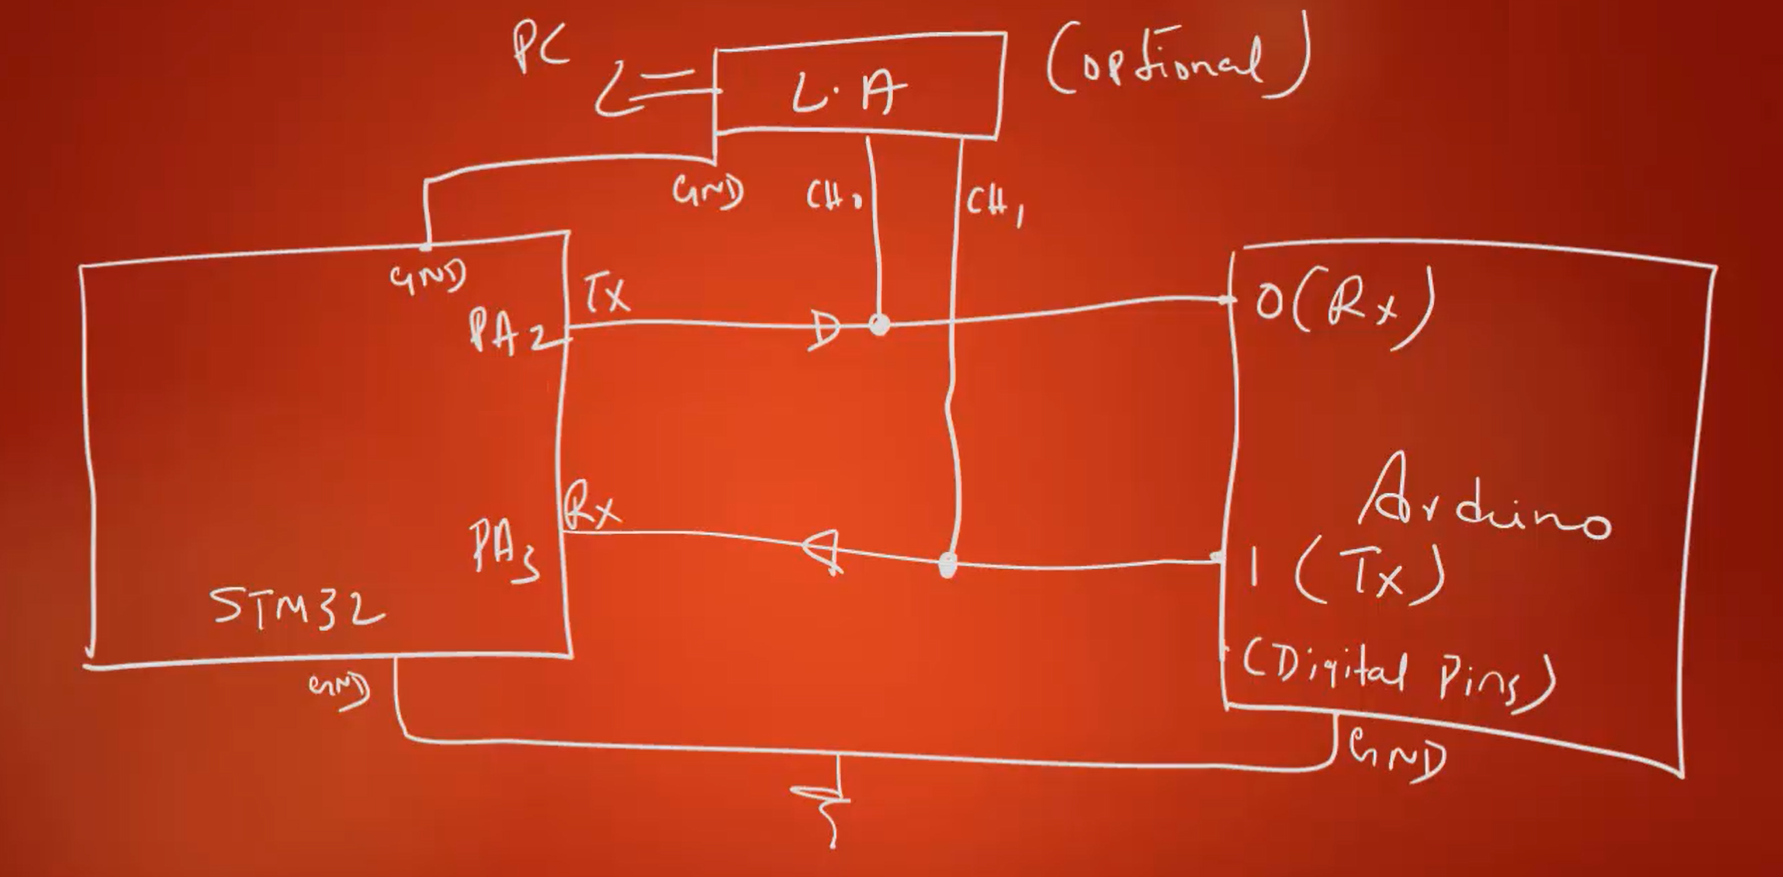 PC
L.A
(optional)
GND
CH0
CH1
GND
Tx
PA2
0(Rx)
Rx
PA3
Arduino
1 (Tx)
STM32
(Digital Pins)
GND
GND